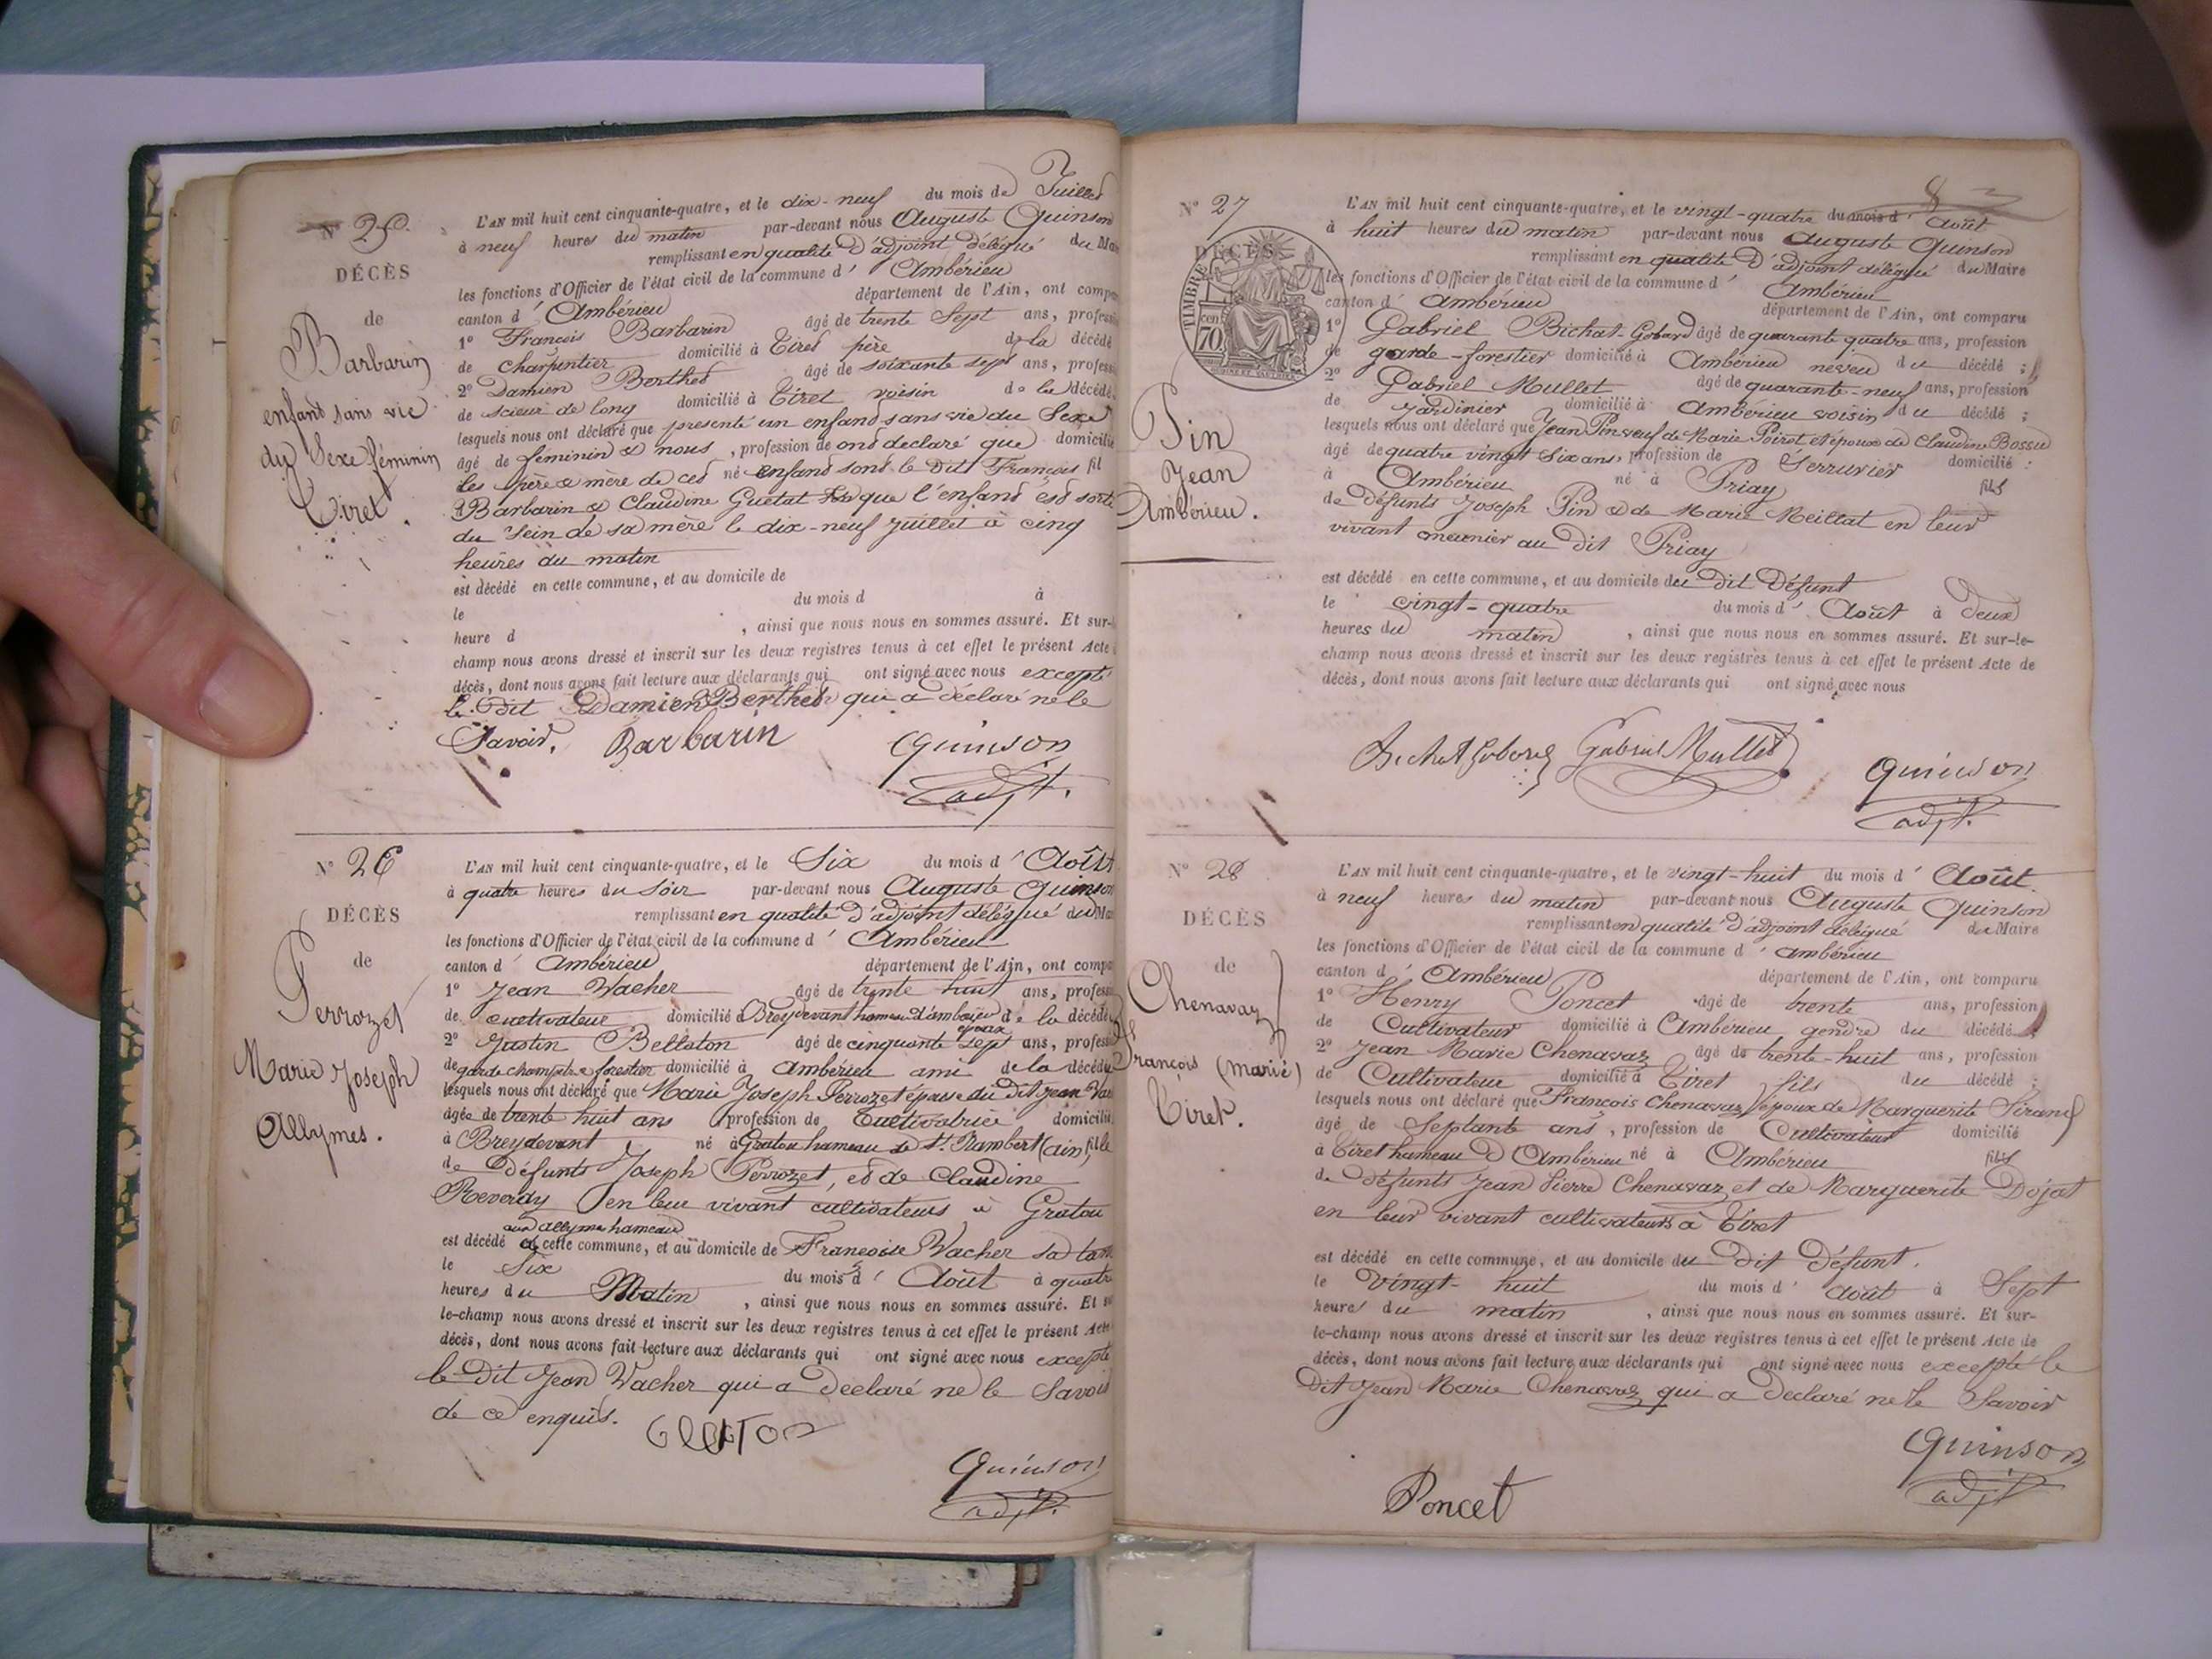 N° 25.
DÉCÈS
de
Barbarin
enfant sans vie
du Sexe féminin
Tiret.
L'AN mil huit cent cinquante-quatre, et le dix-neuf du mois de Juillet
à neuf heures du matin par-devant nous Auguste Quinson
remplissant en qualité d'adjoint délégué du Mai
les fonctions d'Officier de l'état civil de la commune d' Ambérieu
canton d' Ambérieu département de l'Ain, ont compa
1° François Barbarin âgé de trente Sept ans, profess
de charpentier domicilié à Tiret père de la décédé
2° Damien Berthet âgé de soixante sept ans, profess
de scieur de long domicilié à Tiret voisin de la décédé
lesquels nous ont déclaré que présenté un enfant sans vie du Sexe
âgé de féminin & nous , profession de ont déclaré que domicilié
les père & mère de cet né enfant sont le dit François fil
d Barbarin & Claudine Guétat que l'enfant est sorti
du Sein de sa mère le dix-neuf juillet à cinq
heures du matin
est décédé en cette commune, et au domicile de
le du mois d à
heure d , ainsi que nous nous en sommes assuré. Et sur-l
champ nous avons dressé et inscrit sur les deux registres tenus à cet effet le présent Acte
décès, dont nous avons fait lecture aux déclarants qui ont signé avec nous excepté
le Dit Damien Berthet qui a déclaré ne le
Savoir. Barbarin Quinson
adjt.
N° 26
DÉCÈS
de
Perrozet
Marie Joseph
Allymes.
L'AN mil huit cent cinquante-quatre, et le Six du mois d' Août
à quatre heures du Soir par-devant nous Auguste Quinson
remplissant en qualité d'adjoint délégué du Mai
les fonctions d'Officier de l'état civil de la commune d' Ambérieu
canton d' Ambérieu département de l'Ain, ont compa
1° Jean Vacher âgé de trente huit ans, profess
de cultivateur domicilié à Breydevant hameau d'ambérieu de la décédée
époux
2° Justin Belloton âgé de cinquante sept ans, profess
de garde champêtre & forestier domicilié à Ambérieu ami de la décédée
lesquels nous ont déclaré que Marie Joseph Perrozet épouse du dit Jean Va
âgée de trente huit ans profession de Cultivatrice domicilié
à Breydevant né à Gratou hameau de St. Rambert (ain) fille
de Défunts Joseph Perrozet, et de Claudine
Reverdy en leur vivant cultivateurs à Gratou
aux allymes hameau
est décédé de cette commune, et au domicile de Françoise Vacher sa tan
le Six du mois d' Août à quatre
heures du Matin , ainsi que nous nous en sommes assuré. Et su
le-champ nous avons dressé et inscrit sur les deux registres tenus à cet effet le présent Acte
décès, dont nous avons fait lecture aux déclarants qui ont signé avec nous excepté
le Dit Jean Vacher qui a declaré ne le Savoir
de ce enquis.
Quinson
adjt.
8
N° 27
DÉCÈS
TIMBRE
70 cen
Pin
Jean
Ambérieu.
L'AN mil huit cent cinquante-quatre, et le vingt-quatre du mois d' Août
à huit heures du matin par-devant nous Auguste Quinson
remplissant en qualité d'adjoint délégué du Maire
les fonctions d'Officier de l'état civil de la commune d' Ambérieu
canton d' Ambérieu département de l'Ain, ont comparu
1° Gabriel Bichat-Gobard âgé de quarante quatre ans, profession
de garde-forestier domicilié à Ambérieu neveu du décédé ;
2° Gabriel Mullet âgé de quarante-neuf ans, profession
de Jardinier domicilié à Ambérieu voisin du décédé ;
lesquels nous ont déclaré que Jean Pin veuf de Marie Poirot et époux de Claudine Bossu
âgé de quatre vingt Six ans, profession de Serrurier domicilié
à Ambérieu né à Priay fils
de Défunts Joseph Pin & de Marie Meillat en leur
vivant meunier au dit Priay
est décédé en cette commune, et au domicile du dit Défunt
le vingt-quatre du mois d' Août à Deux
heures du matin , ainsi que nous nous en sommes assuré. Et sur-le-
champ nous avons dressé et inscrit sur les deux registres tenus à cet effet le présent Acte de
décès, dont nous avons fait lecture aux déclarants qui ont signé avec nous
Bichat Gobard Gabriel Mullet Quinson
adjt.
N° 28
DÉCÈS
de
Chenavaz
François (marié)
Tiret.
L'AN mil huit cent cinquante-quatre, et le vingt-huit du mois d' Août.
à neuf heures du matin par-devant nous Auguste Quinson
remplissant en qualité d'adjoint délégué du Maire
les fonctions d'Officier de l'état civil de la commune d' Ambérieu
canton d' Ambérieu département de l'Ain, ont comparu
1° Henry Poncet âgé de trente ans, profession
de Cultivateur domicilié à Ambérieu gendre du décédé ;
2° Jean Marie Chenavaz âgé de trente-huit ans, profession
de Cultivateur domicilié à Tiret fils du décédé ;
lesquels nous ont déclaré que François Chenavaz époux de Marguerite Sirand
âgé de Septante ans , profession de Cultivateur domicilié
à Tiret hameau D'Ambérieu né à Ambérieu fils
de défunts Jean Pierre Chenavaz et de Marguerite Dojat
en leur vivant cultivateurs à Tiret
est décédé en cette commune, et au domicile du Dit Défunt.
le Vingt-huit du mois d' Août à Sept
heures du matin , ainsi que nous nous en sommes assuré. Et sur-
le-champ nous avons dressé et inscrit sur les deux registres tenus à cet effet le présent Acte de
décès, dont nous avons fait lecture aux déclarants qui ont signé avec nous excepté le
Dit Jean Marie Chenavaz qui a Declaré ne le Savoir
Quinson
adjt
Poncet